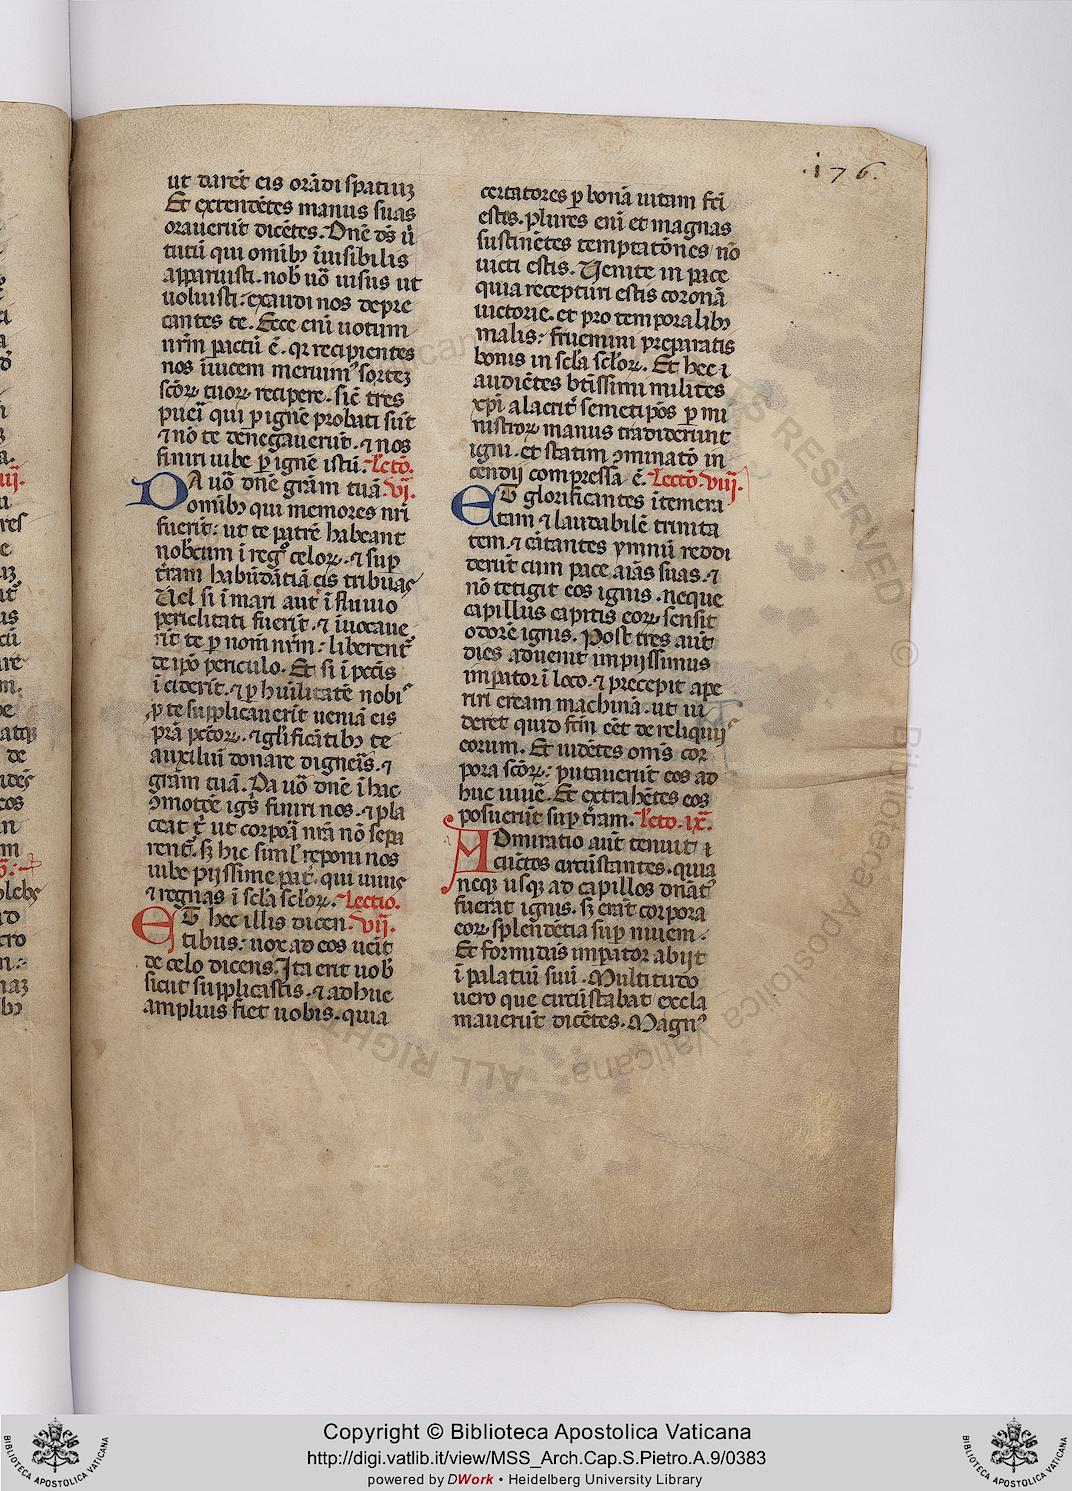 .176.
ut darēt eis orādi spatiuȝ
Et extendētes manus suas
orauerūt dicētes. Dn̄e ds̄ ū
tutū qui omībꝫ īuisibilis
apparuisti. nob̄ uō uisus ut
uoluisti: exaudi nos depre
cantes te. Ecce enī uotum
nr̄m pactū ē. qꝛ recipientes
nos īuicem meruimꝰ sorteȝ
sc̄oꝝ tuoꝝ recipere. sic̄ tres
pueri qui p ignē probati sūt
⁊ nō te denegauerūt. ⁊ nos
finiri iube p ignē istū. Lectō.
DA uō dn̄e gr̄am tuā .vi.
omībꝫ qui memores nr̄i
fuerīt: ut te patrē habeant
nobcum ī regꝰ celoꝝ. ⁊ sup
tr̄am habūdātiā eis tribuas
Uel si ī mari aut ī fluuio
periclitati fuerīt. ⁊ īuocaue
rīt te p nom̄ nr̄m: liberent̄
de ipō periculo. Et si ī pctīs
īciderīt. ⁊ p huīlitatē nobiˢ
ꝓ te supplicauerīt ueniā eis
prā pctōꝝ. ⁊ gl̄ificātibꝫ te
auxiliū donare digneris. ⁊
gr̄am tuā. Da uō dn̄e ī hac
ꝯmotōe igˢ finiri nos. ⁊ pla
ceat t̄ ut corpora nr̄a nō sepa
rent̄. sꝫ hic simĺ reponi nos
iube pijssime pat̄. qui uiuis
⁊ regnas ī scĺa scĺoꝝ. Lectio.
ET hec illis dicen .vij.
tibus: uox ad eos uēit
de celo dicens. Ita erit uob̄
sicut supplicastis. ⁊ adhuc
amplius fiet uobis. quia
certatores p bonā uitam fc̄i
estis. plures enī et magnas
sustinētes temptatōnes nō
uicti estis. Uenite in pace
quia recepturi estis coronā
uictorie. et pro temporalibꝫ
malis: fruemini preparatis
bonis in scĺa scĺoꝝ. Et hec ī
audiētes btīssimi milites
xp̄i alacrit̄ semetipōs p mi
nistroꝝ manus tradiderunt
igni. et statim ꝯminatō in
cendij compressa ē. Lectō. viij.
ET glorificantes ītemera
tam ⁊ laudabilē trinita
tem. ⁊ cātantes ymnū reddi
derūt cum pace aīas suas. ⁊
nō tetigit eos ignis. neque
capillus capitis eoꝝ sensit
odorē ignis. Post tres aūt
dies aduenit impijssimus
imp̄ator ī loco. ⁊ precepit ape
riri eream machinā. ut ui
deret quid fc̄m eēt de reliquijˢ
eorum. Et uidētes omīs cor
pora sc̄oꝝ: putauerūt eos ad
huc uiuē. Et extrahētes eos
posuerūt sup tr̄am. Lectō. ix.
ADmiratio aūt tenuit ī
cūctos circūstantes. quia
neqꝫ usqꝫ ad capillos dnāt̄
fuerat ignis. sꝫ erāt corpora
eoꝝ splendētia sup niuem.
Et formidās imp̄ator abijt
ī palatiū suū. Multitudo
uero que circūstabat excla
mauerūt dicētes. Magnꝰ
Copyright © Biblioteca Apostolica Vaticana
http://digi.vatlib.it/view/MSS_Arch.Cap.S.Pietro.A.9/0383
powered by DWork • Heidelberg University Library